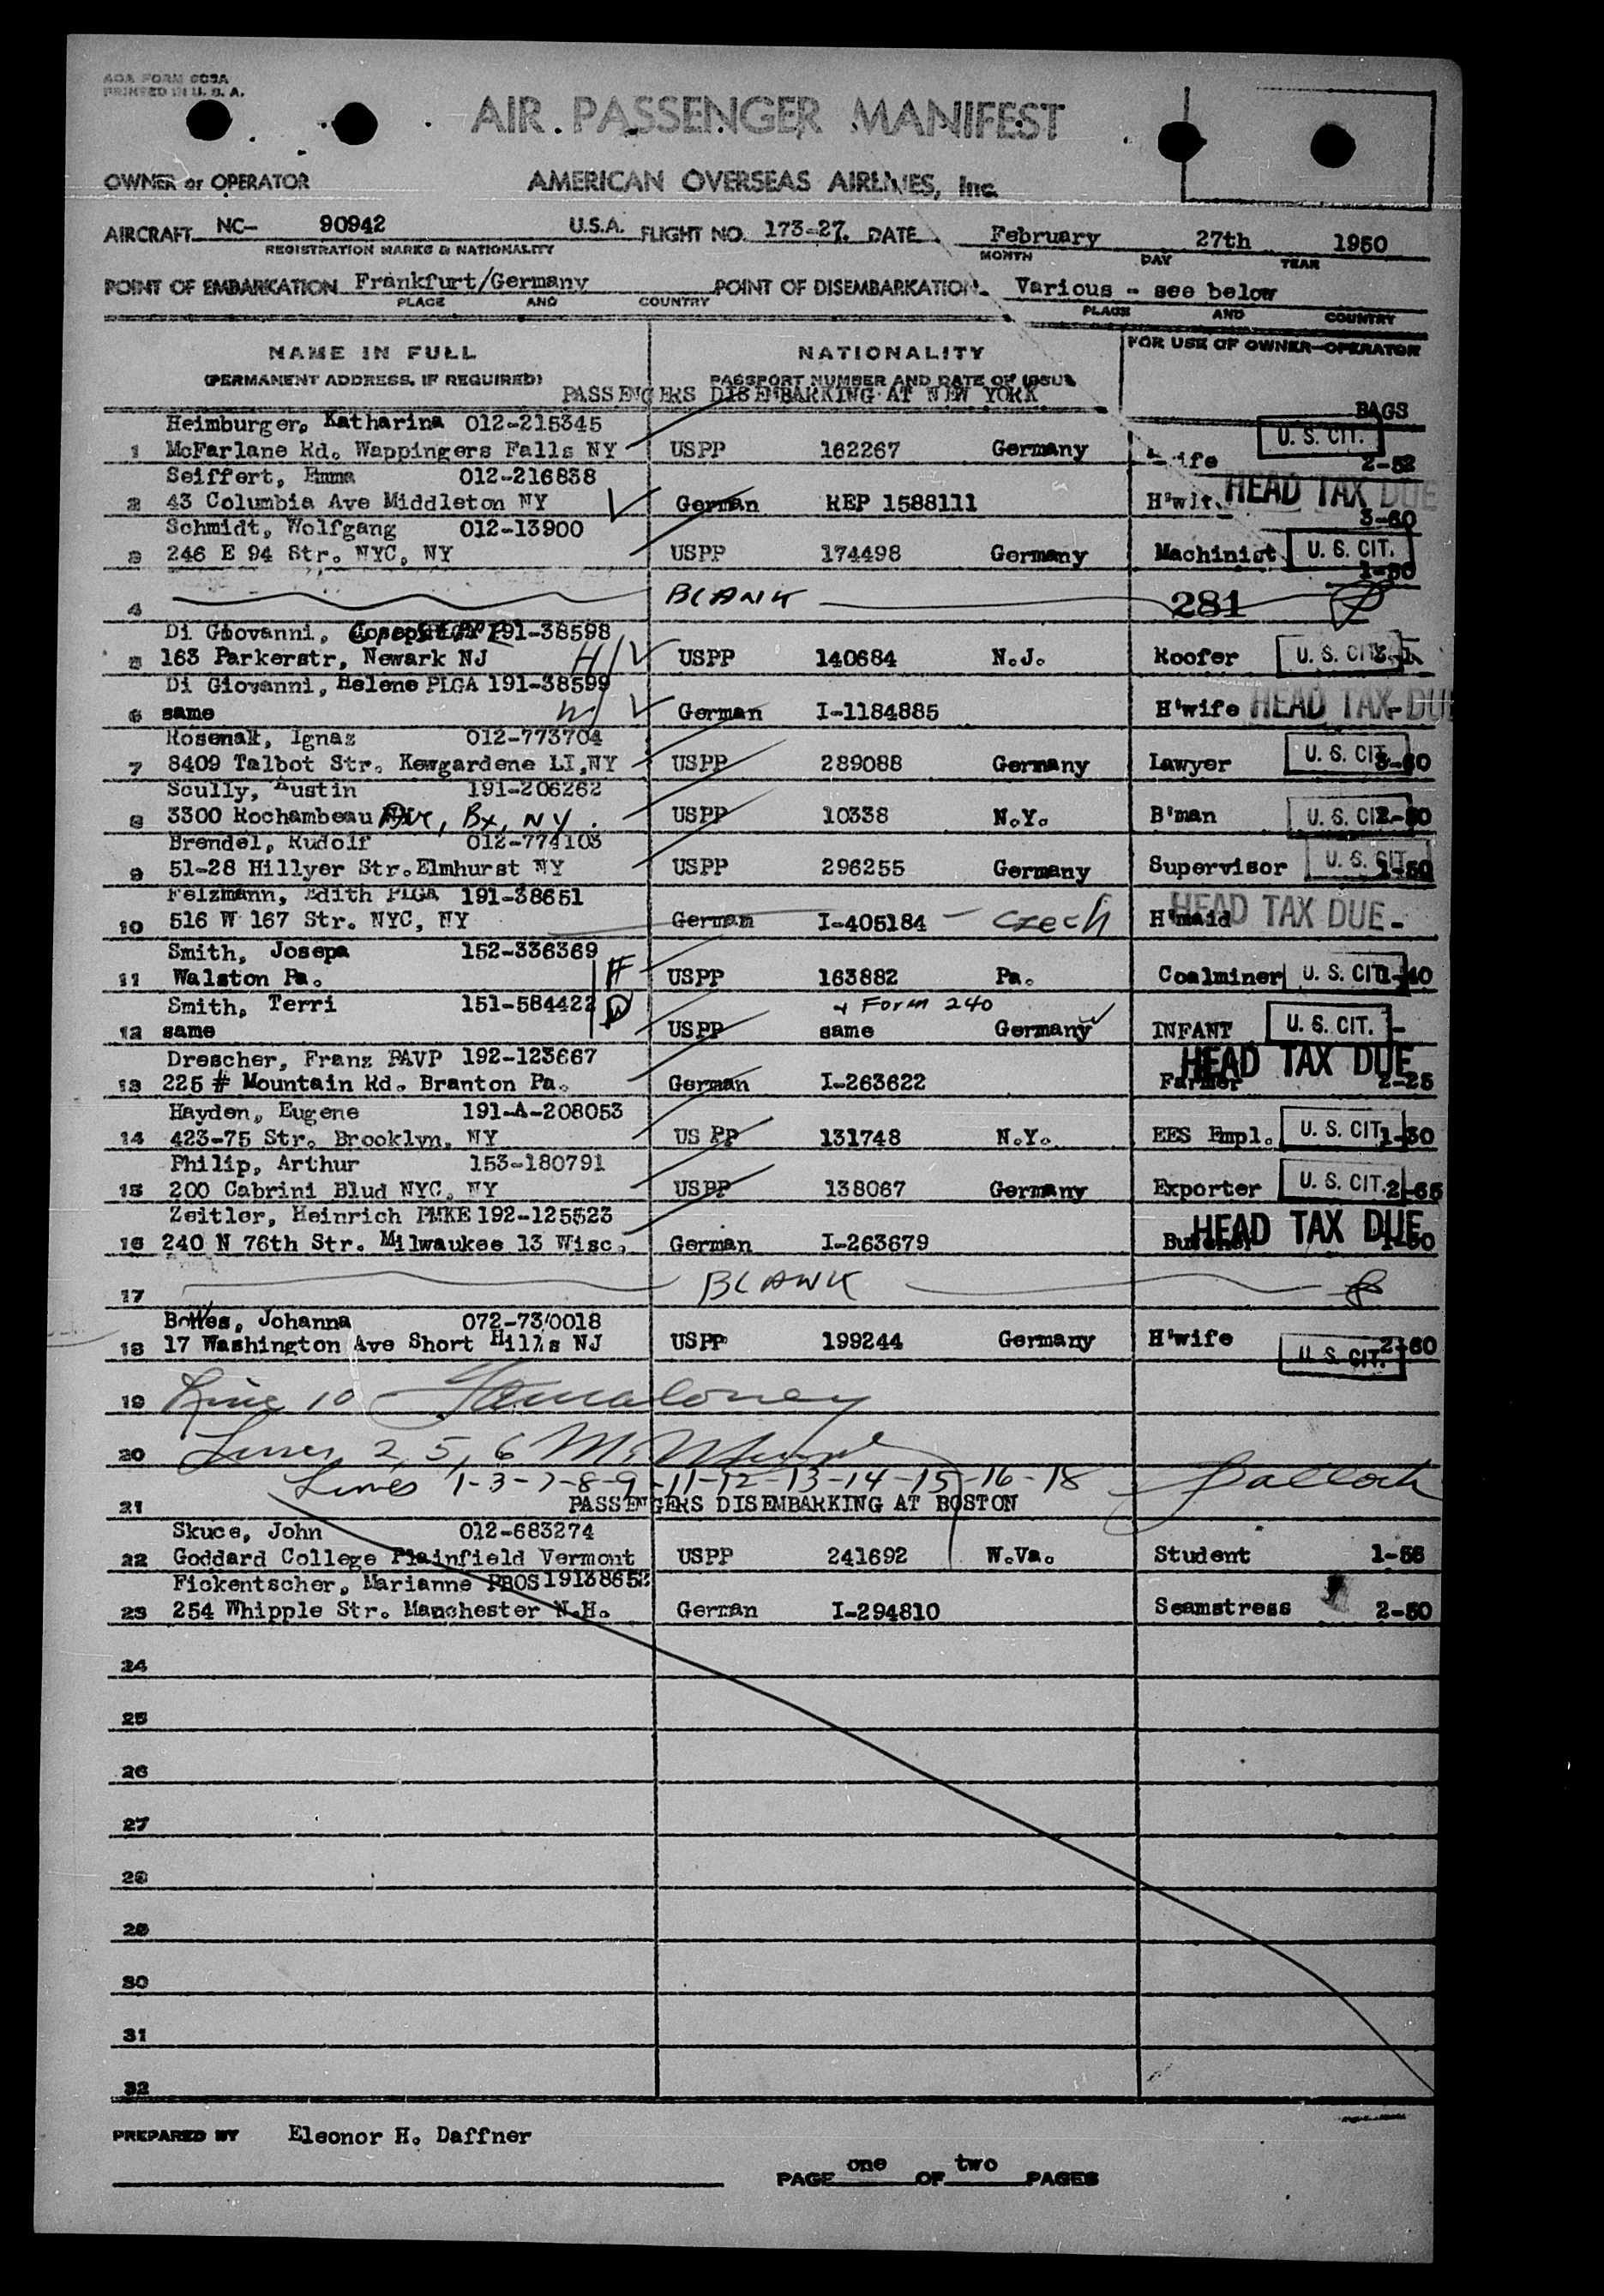 AOA FORM 608A
PRINTED IN U. S. A.
AIR PASSENGER MANIFEST
OWNER or OPERATOR AMERICAN OVERSEAS AIRLINES, Inc.
AIRCRAFT NC- 90942 U.S.A. FLIGHT NO. 173-27. DATE February 27th 1950
REGISTRATION MARKS & NATIONALITY MONTH DAY YEAR
POINT OF EMBARKATION Frankfurt/Germany POINT OF DISEMBARKATION Various - see below
PLACE AND COUNTRY PLACE AND COUNTRY
NAME IN FULL NATIONALITY FOR USE OF OWNER-OPERATOR
(PERMANENT ADDRESS, IF REQUIRED) PASSPORT NUMBER AND DATE OF ISSUE
PASSENGERS DISEMBARKING AT NEW YORK BAGS
Heimburger, Katharina 012-215345 U. S. CIT.
1 McFarlane Rd. Wappingers Falls NY USPP 162267 Germany 2-52
Seiffert, Emma 012-216838 HEAD TAX DUE
2 43 Columbia Ave Middleton NY German REP 1588111 3-60
Schmidt, Wolfgang 012-13900
3 246 E 94 Str. NYC, NY USPP 174498 Germany Machinist U. S. CIT.
4 BLANK 281
Di Giovanni, 191-38598
5 163 Parkerstr, Newark NJ H USPP 140684 N.J. Roofer U. S. CIT.
Di Giovanni, Helene PLGA 191-38599
6 same W German I-1184885 H'wife HEAD TAX DUE
Ignaz 012-773704
7 8409 Talbot Str. Kewgardene LI,NY USPP 289088 Germany Lawyer U. S. CIT. 3-60
Scully, Austin 191-206262
8 3300 Rochambeau Ave, Bx, NY. USPP 10338 N.Y. B'man U. S. CIT.
Brendel, Rudolf 012-774103
9 51-28 Hillyer Str.Elmhurst NY USPP 296255 Germany Supervisor U. S. CIT. 1-50
Felzmann, Edith PLGA 191-38651
10 516 W 167 Str. NYC, NY German I-405184 - Czech H'maid HEAD TAX DUE -
Smith, Josepa 152-336369
11 Walston Pa. F USPP 163882 Pa. Coalminer U. S. CIT. 1-40
Smith, Terri 151-584422 D Form 240
12 same USPP same Germany INFANT U. S. CIT. -
Drescher, Franz PAVP 192-123667 HEAD TAX DUE
13 225 # Mountain Rd. Branton Pa. German I-263622 Farmer 2-25
Hayden, Eugene 191-A-208053
14 423-75 Str. Brooklyn, NY US PP 131748 N.Y. EES Empl. U. S. CIT. 1-30
Philip, Arthur 153-180791
15 200 Cabrini Blud NYC, NY USPP 138067 Germany Exporter U. S. CIT. 2-65
Zeitler, Heinrich PMKE 192-125523 HEAD TAX DUE
16 240 N 76th Str. Milwaukee 13 Wisc. German I-263679 Butcher
17 BLANK
Johanna 072-73/0018
18 17 Washington Ave Short Hills NJ USPP 199244 Germany H'wife U. S. CIT. 2-60
19 Line 10
20 Lines 2, 5, 6
Lines 1-3-7-8-9-11-12-13-14-15-16-18
21 PASSENGERS DISEMBARKING AT BOSTON
Skuce, John 012-683274
22 Goddard College Plainfield Vermont USPP 241692 W.Va. Student 1-55
Fickentscher, Marianne PBOS 19138652
23 254 Whipple Str. Manchester N.H. German I-294810 Seamstress 2-50
24
25
26
27
28
29
30
31
32
PREPARED BY Eleonor H. Daffner
PAGE one OF two PAGES